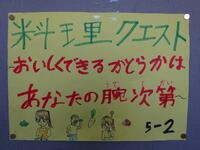 料理クエスト
～おいしくできるかどうかは
あなたの腕次第～
うでしだい
5-2